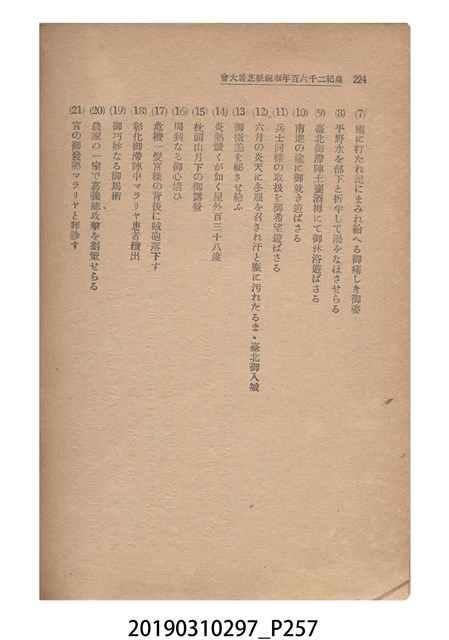 皇紀二千六百年奉祝獻芝居大會 224
(7) 雨に打たれ泥にまみれ給へる御痛しき御姿
(8) 平野水を部下と折半して渇をなほさせらる
(9) 臺北御滯陣土竈酒樽にて御沐浴遊ばさる
(10) 南進の途に御就き遊ばさる
(11) 兵士同樣の取扱を御希望遊ばさる
(12) 六月の炎天に冬服を召され汗と塵に汚れたるまゝ臺北御入城
(13) 御微恙を祕させ給ふ
(14) 炎熱灼くが如く屋外百三十八度
(15) 枕頭山月下の御露營
(16) 周到なる御心遣ひ
(17) 危機一髪宮樣の背後に賊砲落下す
(18) 彰化御滯陣中マラリヤ患者續出
(19) 御巧妙なる御馬術
(20) 農家の一室で嘉義總攻擊を劃策せらる
(21) 宮の御發熱マラリヤと拜診す
20190310297_P257